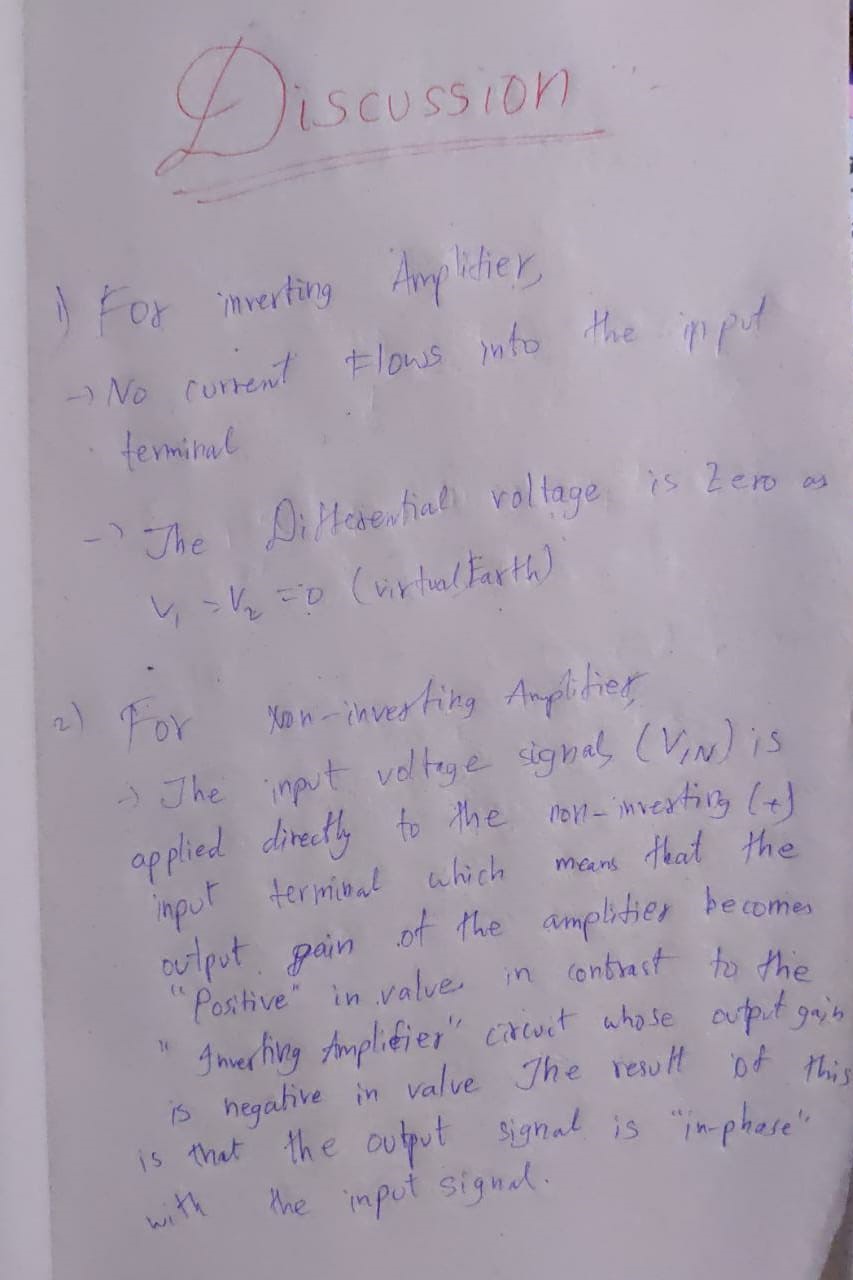 Discussion
1) For inverting Amplifier,
-> No current Flows into the input
terminal
-> The Differential voltage is Zero as
V₁ = V₂ = 0 (virtual Earth)
2) For Non-inverting Amplifier,
-> The input voltage signal, (VIN) is
applied directly to the non-inverting (+)
input terminal which means that the
output gain of the amplifier becomes
"Positive" in value in contrast to the
"Inverting Amplifier" circuit whose output gain
is negative in value The result of this
is that the output signal is "in-phase"
with the input signal.